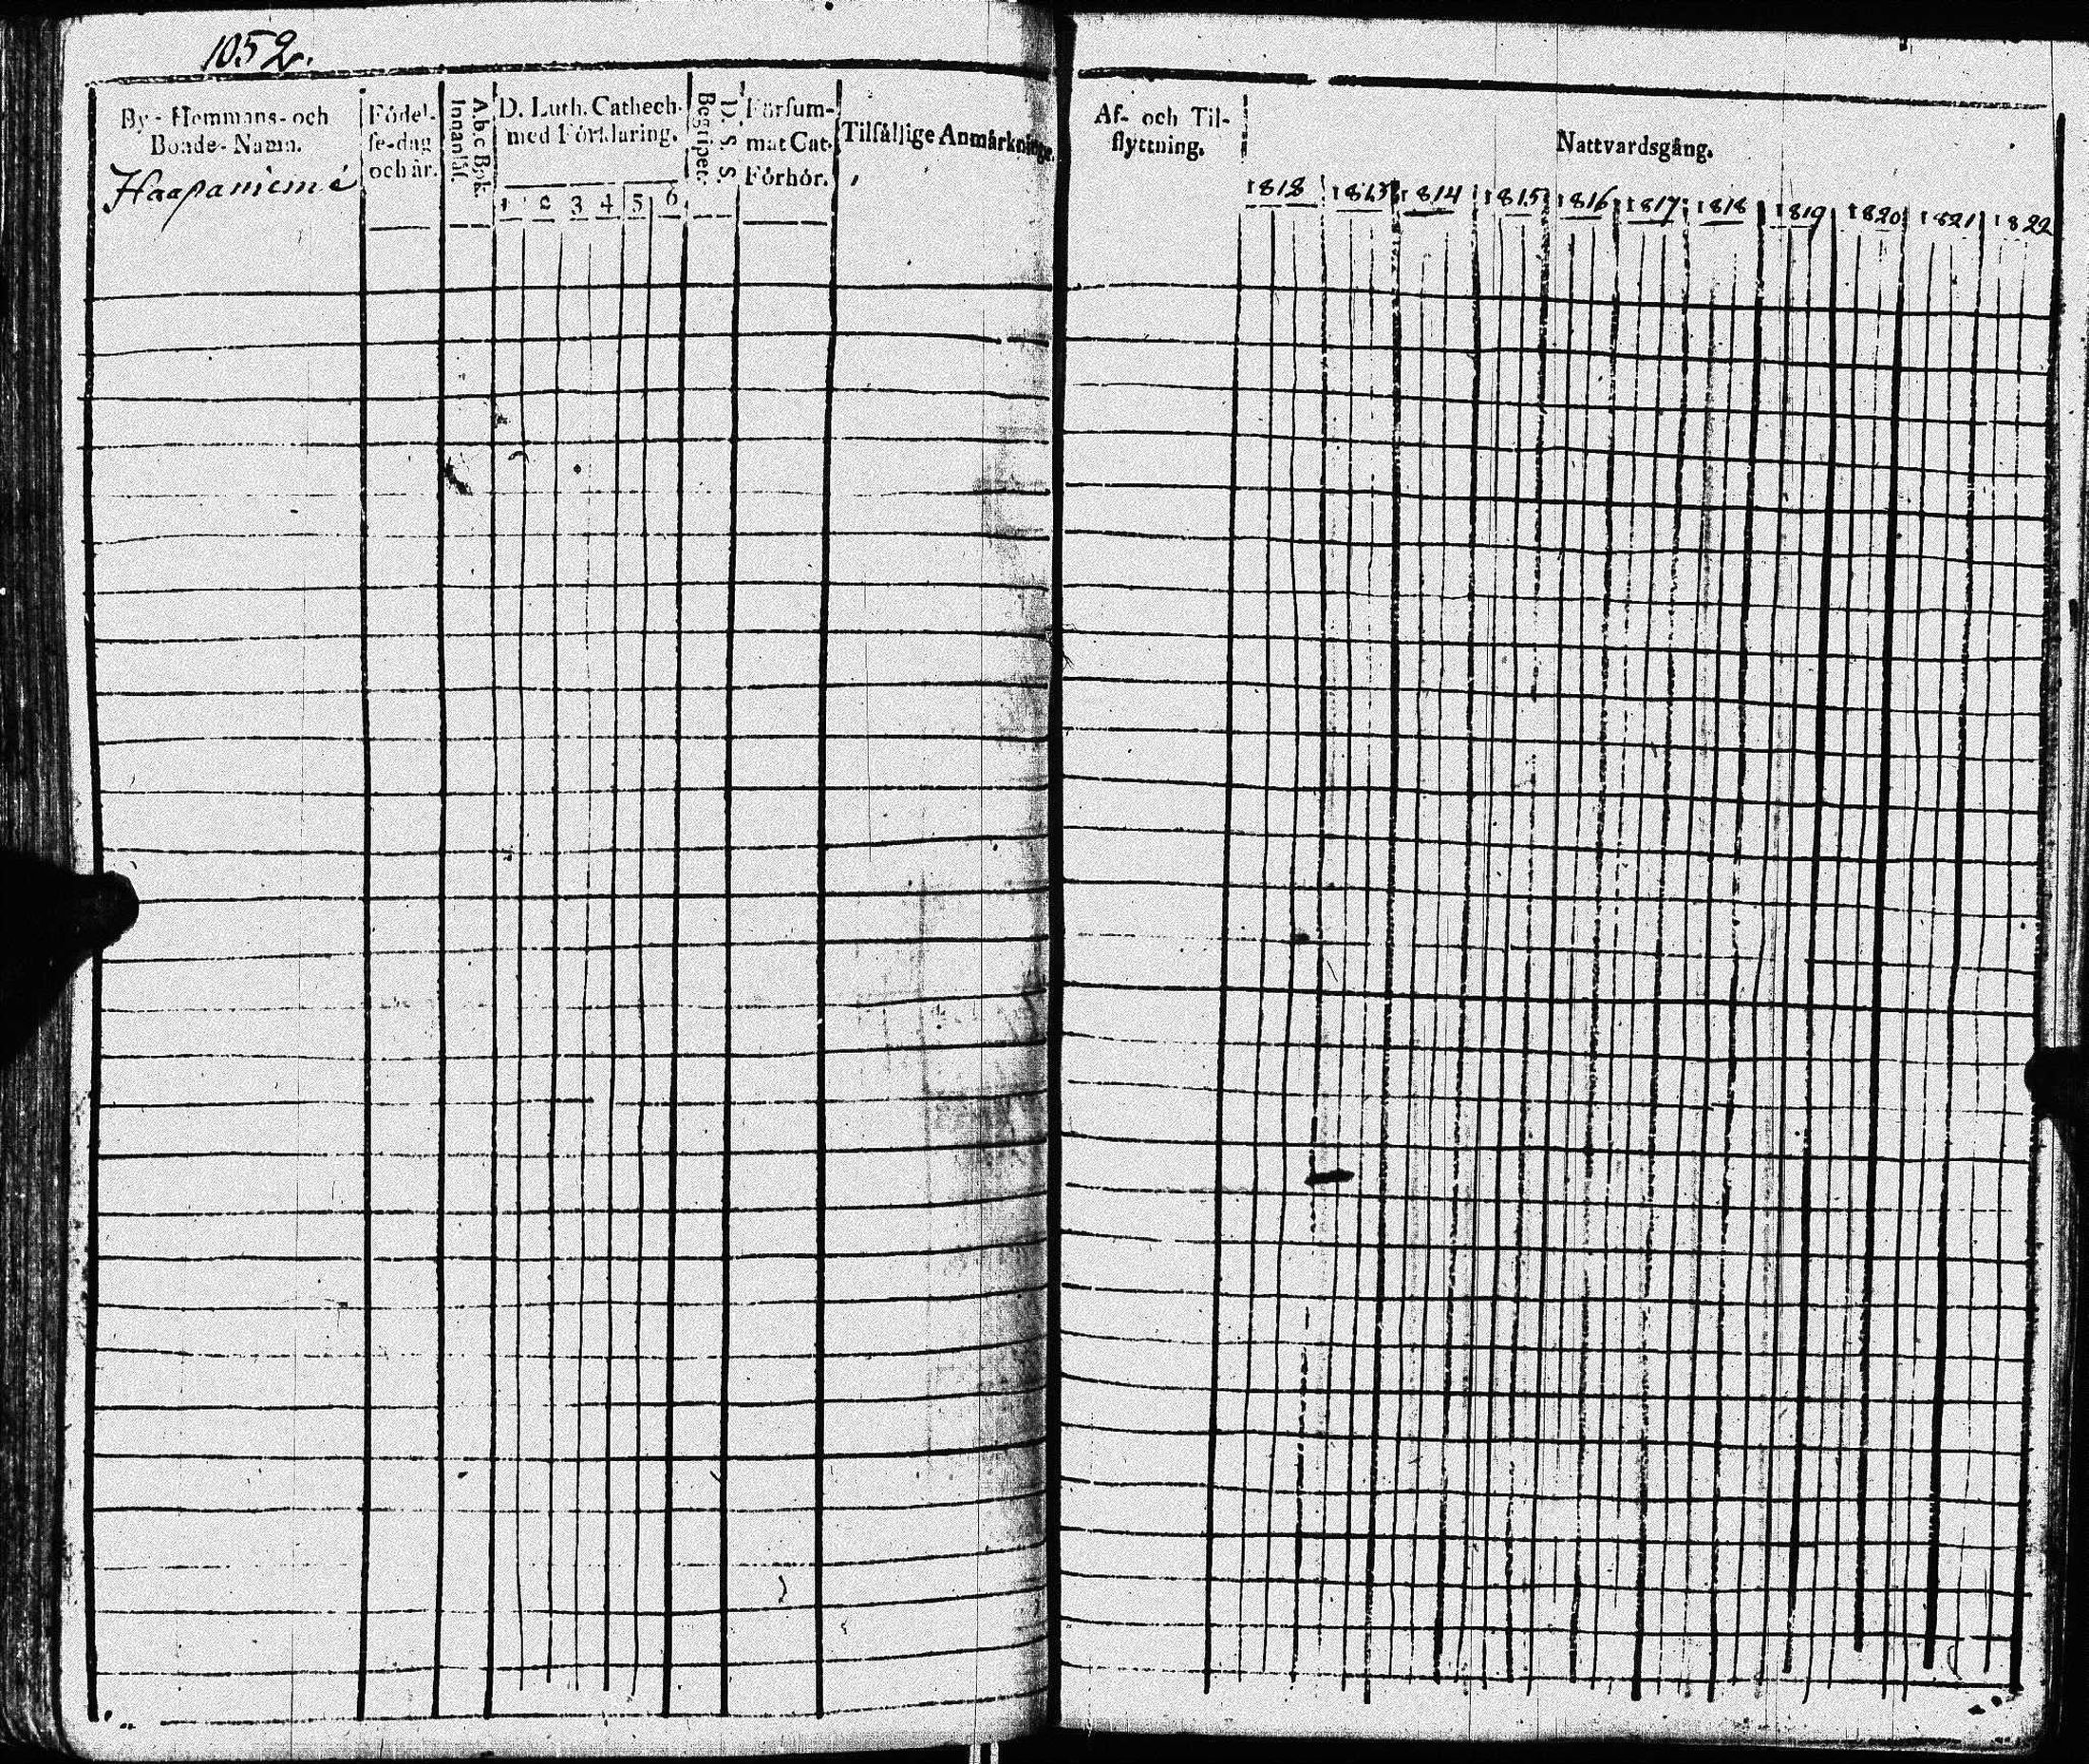 1052.
By- Hemmans- och
Bonde- Namn.
Haapaniemi
Födel-
se-dag
och år.
A.b.c Bok.
Innanläs.
D. Luth. Cathech.
med Förklaring.
1 2 3 4 5 6
D. S. S.
Begriper.
Försum-
mat Cat.
Förhör.
Tilfällige Anmärkningar.
Af- och Til-
flyttning.
Nattvardsgång.
1812 1813 1814 1815 1816 1817 1818 1819 1820 1821 1822